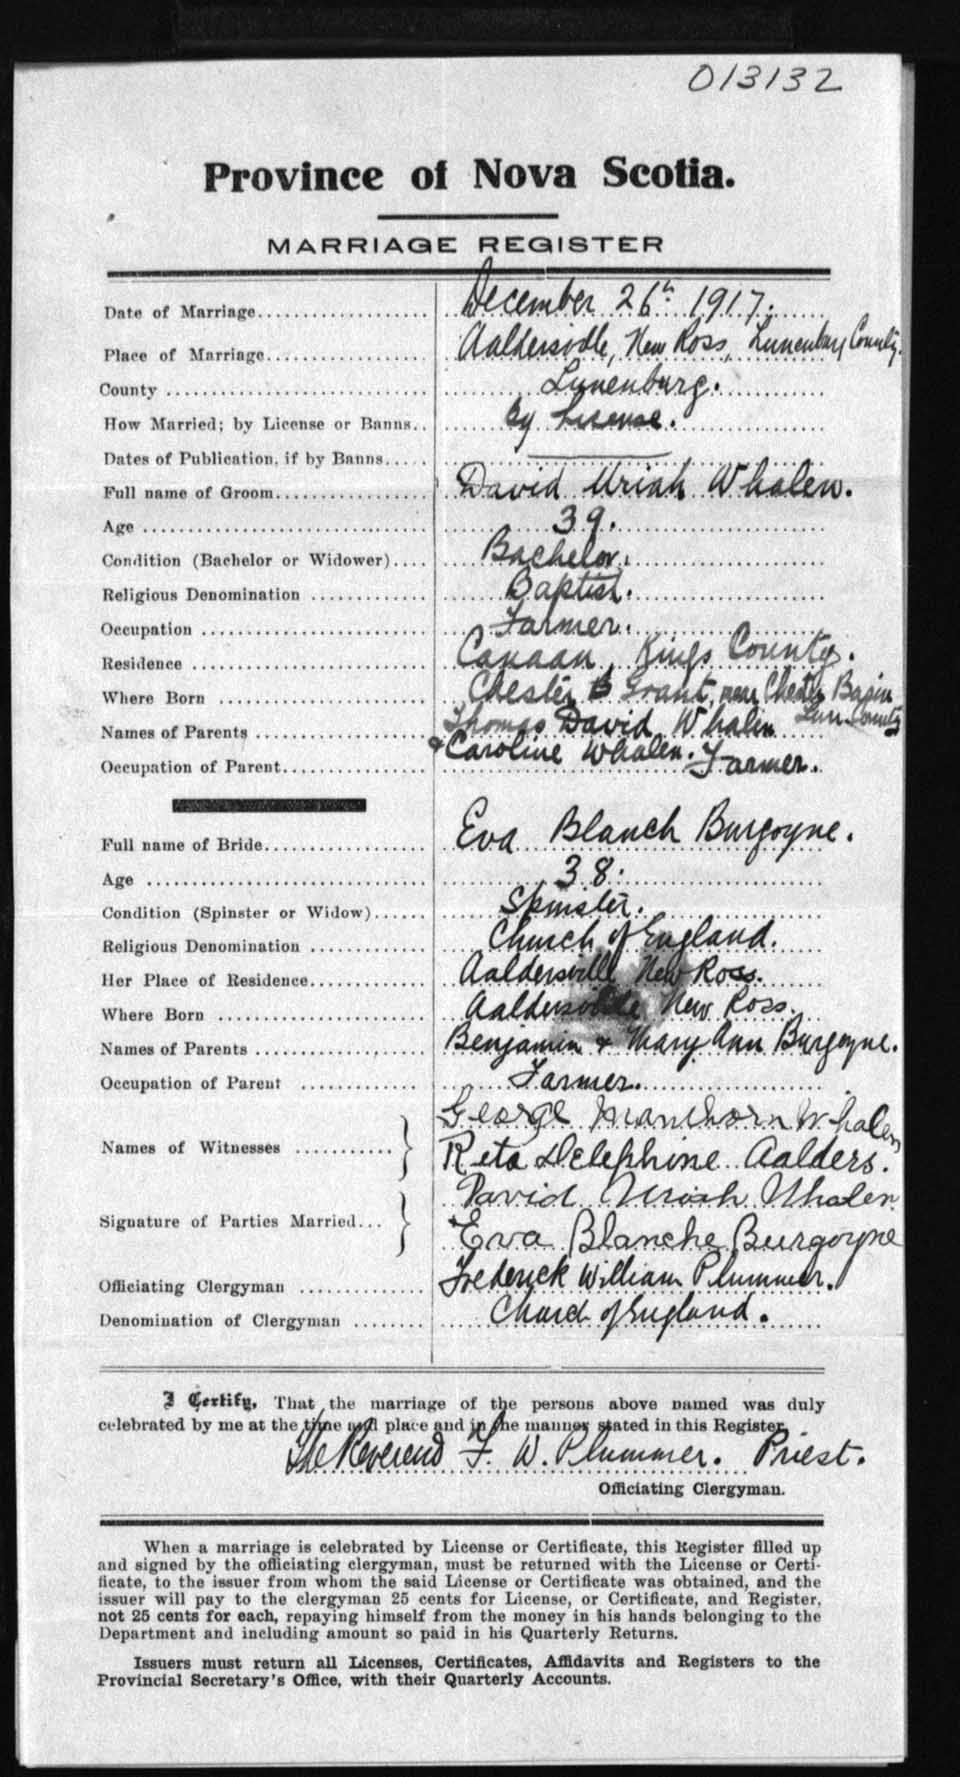 013132
Province of Nova Scotia.
MARRIAGE REGISTER
Date of Marriage December 26th 1917.
Place of Marriage Aaldersville, New Ross, Lunenburg County.
County Lunenburg.
How Married; by License or Banns by License.
Dates of Publication, if by Banns
Full name of Groom David Uriah Whalen.
Age 39.
Condition (Bachelor or Widower) Bachelor.
Religious Denomination Baptist.
Occupation Farmer.
Residence Canaan, Kings County.
Where Born Chester Grant, near Chester Basin Lun. County
Names of Parents Thomas David Whalen
& Caroline Whalen.
Occupation of Parent Farmer.
Full name of Bride Eva Blanch Burgoyne.
Age 38.
Condition (Spinster or Widow) Spinster.
Religious Denomination Church of England.
Her Place of Residence Aaldersville New Ross.
Where Born Aaldersville New Ross.
Names of Parents Benjamin & Mary Ann Burgoyne.
Occupation of Parent Farmer.
Names of Witnesses George Whalen
Reta Delephine Aalders.
Signature of Parties Married David Uriah Whalen
Eva Blanche Burgoyne
Officiating Clergyman Frederick William Plummer.
Denomination of Clergyman Church of England.
I Certify, That the marriage of the persons above named was duly
celebrated by me at the time and place and in the manner stated in this Register.
The Reverend F. W. Plummer. Priest.
Officiating Clergyman.
When a marriage is celebrated by License or Certificate, this Register filled up
and signed by the officiating clergyman, must be returned with the License or Certi-
ficate, to the issuer from whom the said License or Certificate was obtained, and the
issuer will pay to the clergyman 25 cents for License, or Certificate, and Register,
not 25 cents for each, repaying himself from the money in his hands belonging to the
Department and including amount so paid in his Quarterly Returns.
Issuers must return all Licenses, Certificates, Affidavits and Registers to the
Provincial Secretary's Office, with their Quarterly Accounts.